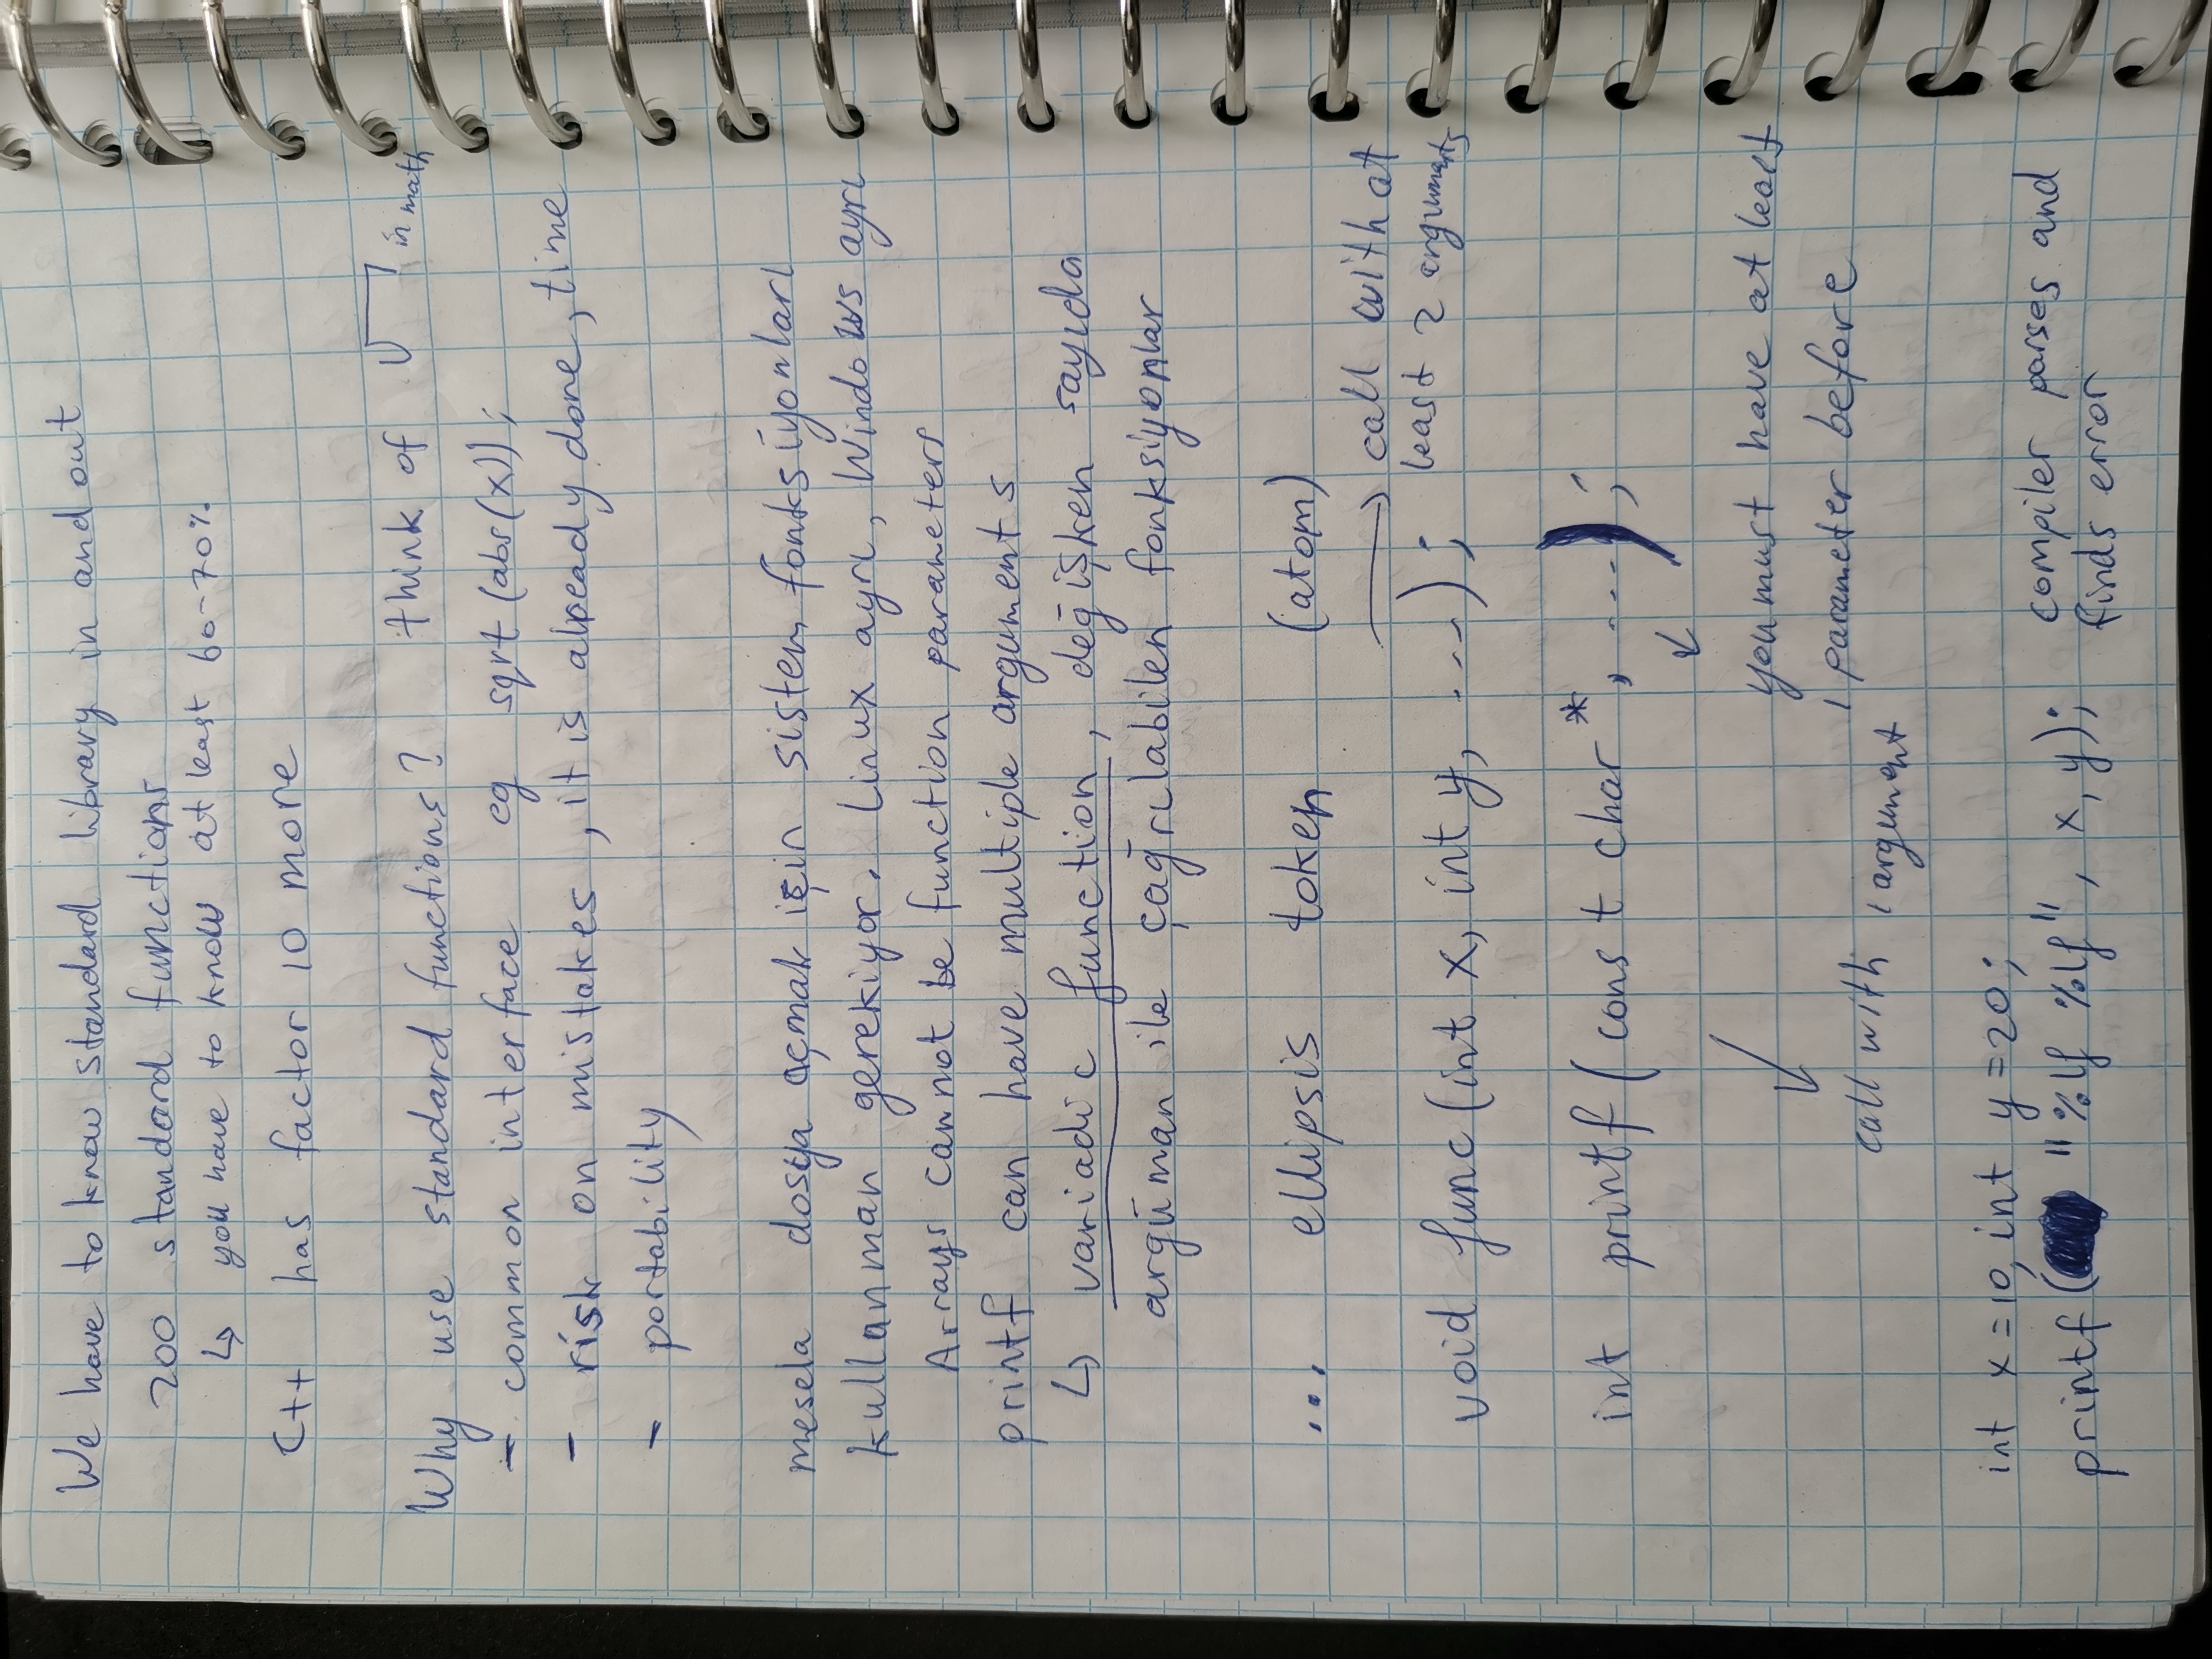 We have to know standard library in and out
200 standard functions
↳ you have to know at least 60-70%
C++ has factor 10 more
think of √ in math
Why use standard functions?
- common interface eg sqrt(abs(x));
- risk on mistakes, it is already done, time
- portability
mesela dosya açmak için sistem fonksiyonları
kullanman gerekiyor. Linux ayrı, Windows ayrı
Arrays cannot be function parameters
printf can have multiple arguments
↳ variadic function, değişken sayıda
argüman ile çağrılabilen fonksiyonlar
... ellipsis token (atom)
→ call with at
least 2 arguments
void func(int x, int y, ...);
int printf(const char*, ...);
you must have at least
1 parameter before
call with 1 argument
int x=10, int y=20;
printf("%lf %lf", x, y);
compiler parses and
finds error